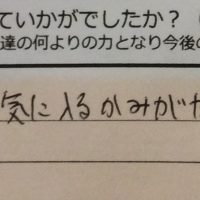 ていかがでしたか？
達の何よりの力となり今後の
気に入るかみがた